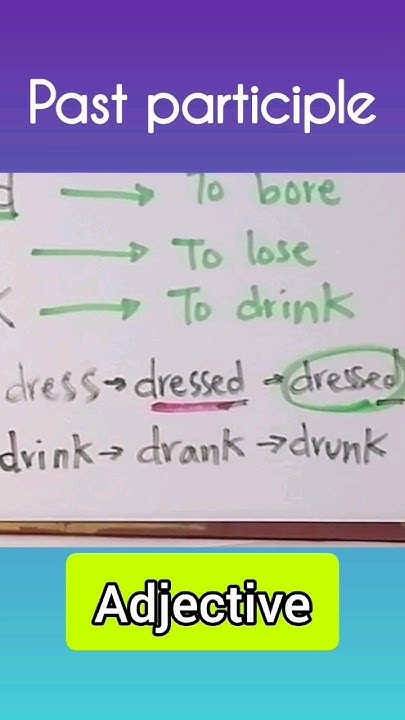 Past participle
d → To bore
→ To lose
→ To drink
dress → dressed → dressed
drink → drank → drunk
Adjective